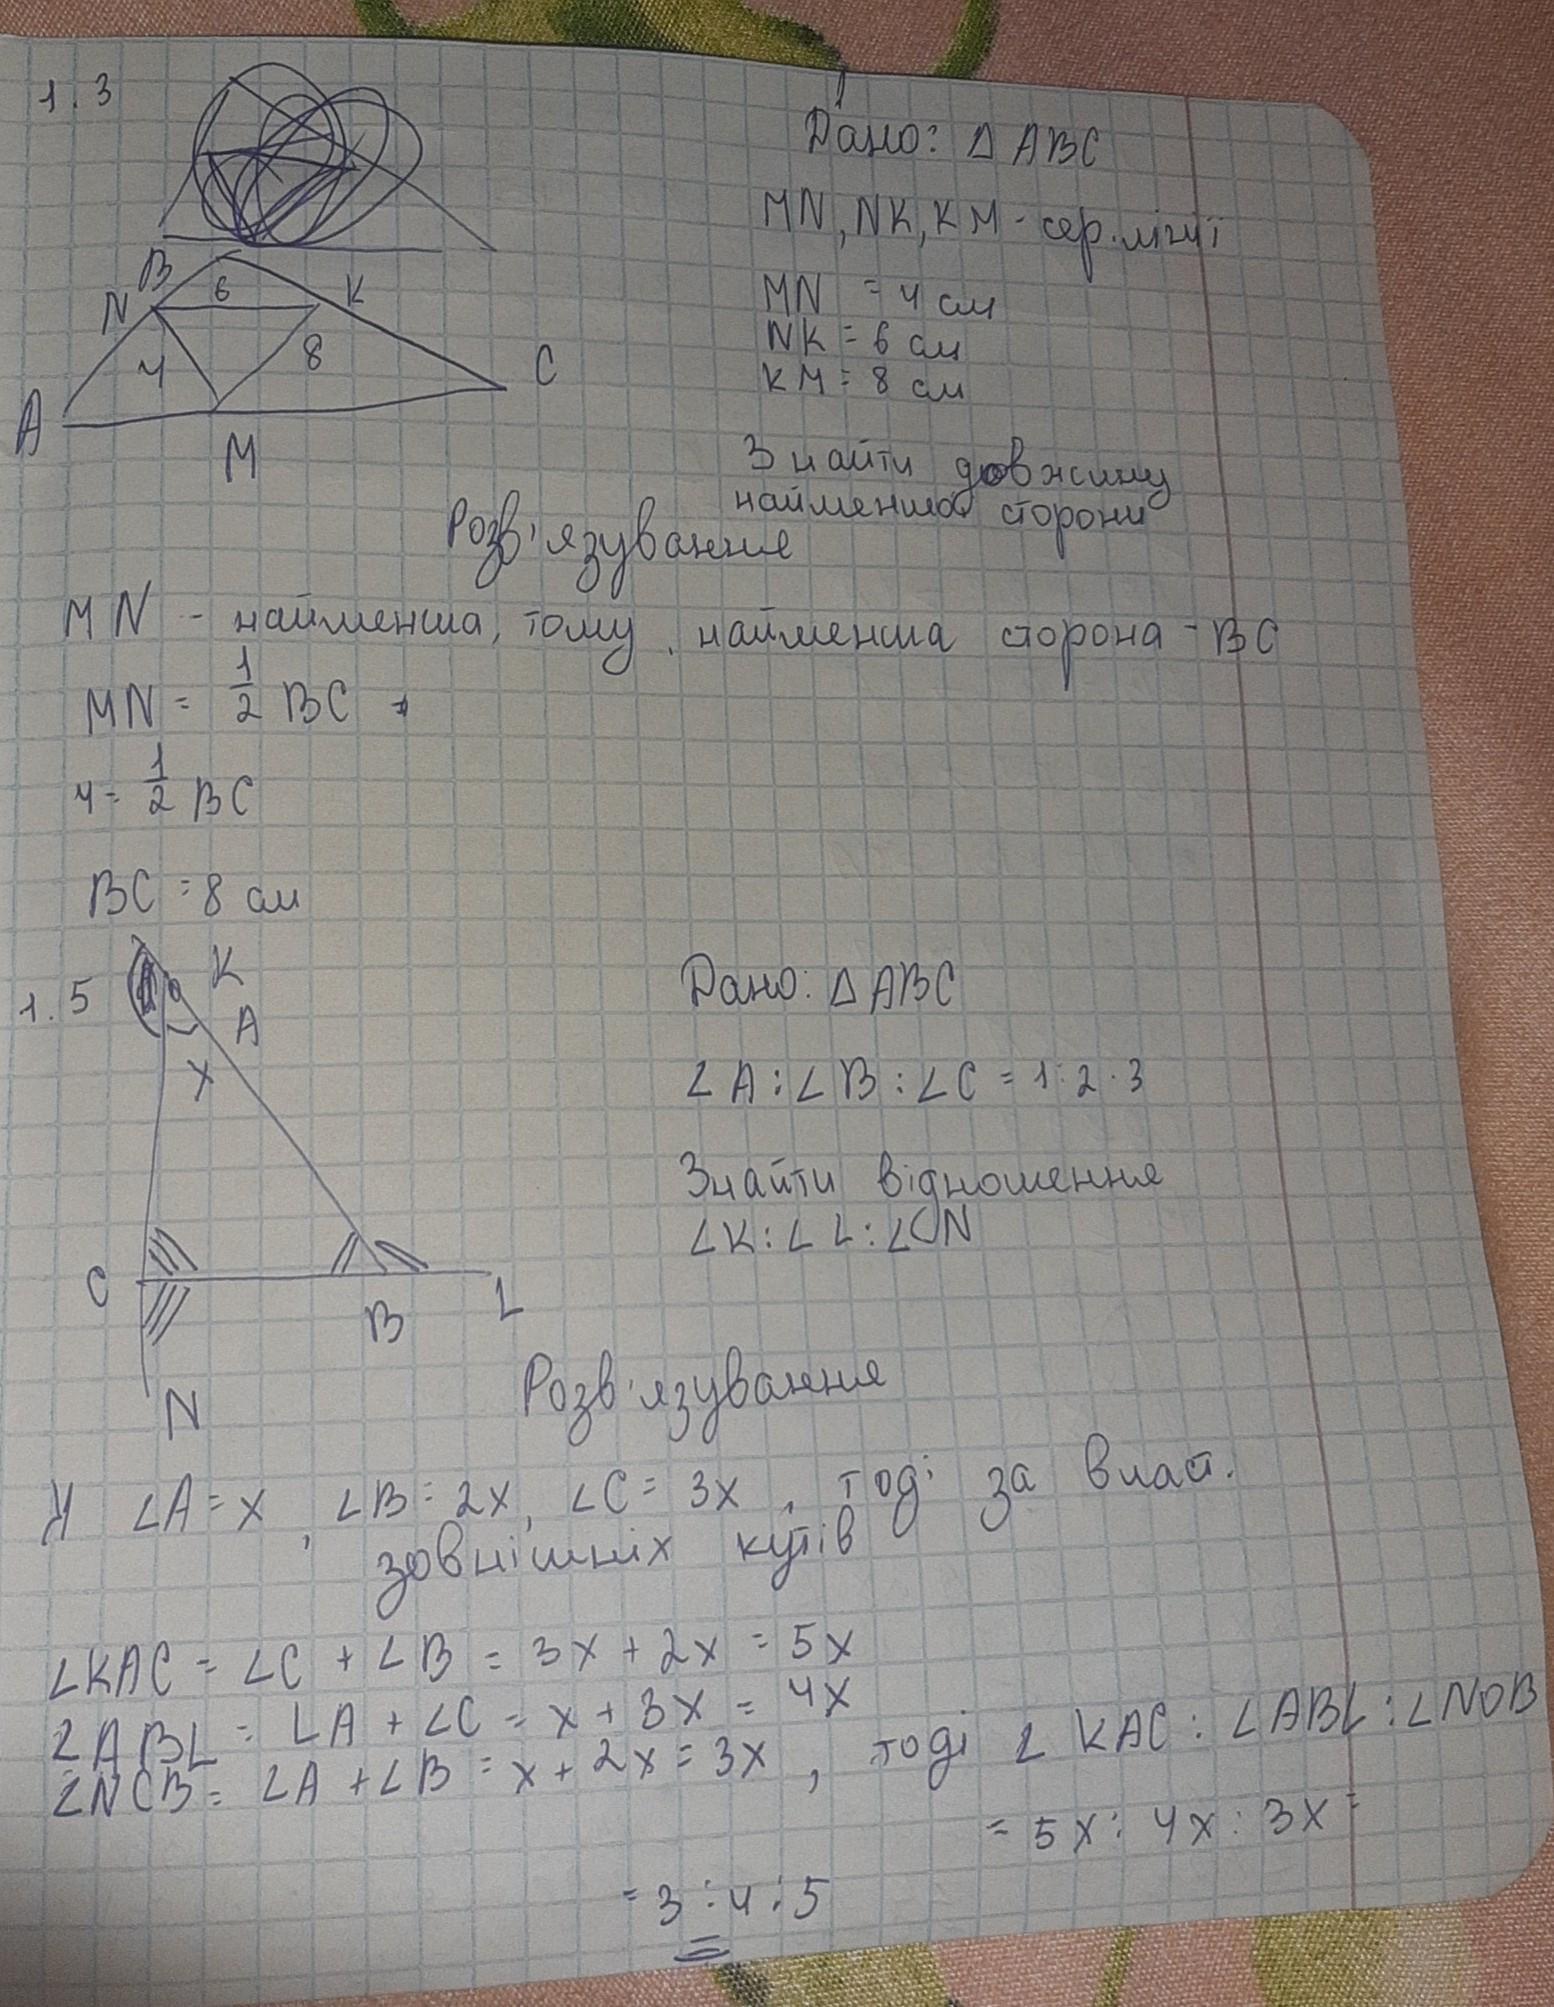 1.3
Дано: △ ABC
MN, NK, KM - сер. лінії
B
N 6 K
MN = 4 см
NK = 6 см
4 8 C
KM = 8 см
A
M
Знайти довжину
найменшої сторони
Розв'язування
MN - найменша, тому, найменша сторона - BC
MN = 1/2 BC
4 = 1/2 BC
BC = 8 см
1.5
K
A
X
Дано: △ ABC
∠A : ∠B : ∠C = 1:2:3
Знайти відношення
∠K : ∠L : ∠N
C
B
L
N
Розв'язування
∠A = x, ∠B = 2x, ∠C = 3x, тоді за власт.
зовнішніх кутів
∠KAC = ∠C + ∠B = 3x + 2x = 5x
∠ABL = ∠A + ∠C = x + 3x = 4x
∠NCB = ∠A + ∠B = x + 2x = 3x, тоді ∠KAC : ∠ABL : ∠NCB
= 5x : 4x : 3x =
= 3 : 4 : 5